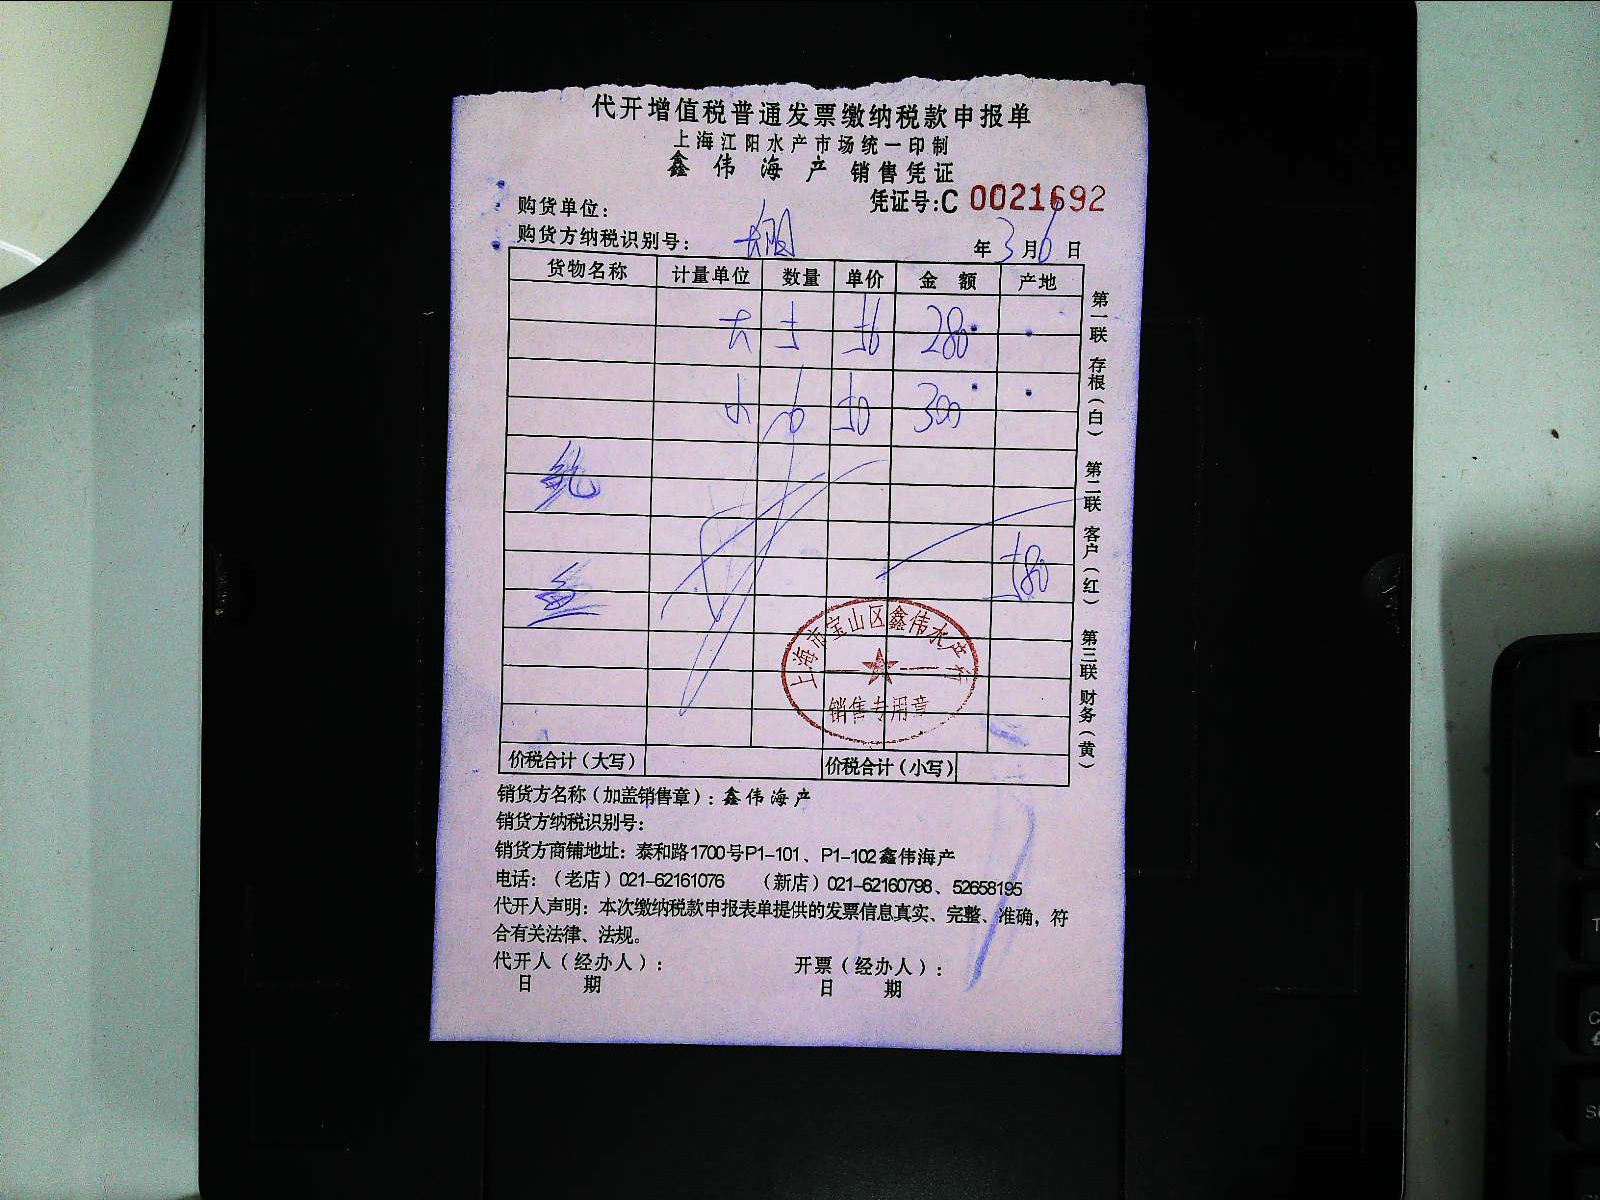 代开增值税普通发票缴纳税款申报单
上海江阳水产市场统一印制
鑫伟海产 销售凭证
凭证号:C 0021692
购货单位:
购货方纳税识别号:
年3月6日
货物名称 计量单位 数量 单价 金额 产地
大 280
小 300
鱼
上海市宝山区鑫伟水产行
销售专用章
价税合计(大写) 价税合计(小写)
第一联 存根(白) 第二联 客户(红) 第三联 财务(黄)
销货方名称(加盖销售章):鑫伟海产
销货方纳税识别号:
销货方商铺地址:泰和路1700号P1-101、P1-102鑫伟海产
电话:(老店)021-62161076 (新店)021-62160798、52658195
代开人声明:本次缴纳税款申报表单提供的发票信息真实、完整、准确,符
合有关法律、法规。
代开人(经办人): 开票(经办人):
日 期 日 期